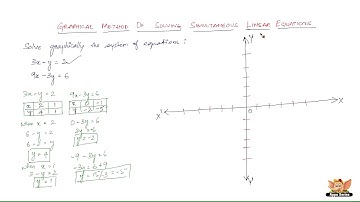 Graphical Method Of Solving Simultaneous Linear Equations
Solve graphically the system of equations :
3x - y = 2
9x - 3y = 6
3x - y = 2
9x - 3y = 6
x 2 1
y 4 1
x 0 -1
y -2 -5
when x = 2
6 - y = 2
6 - 2 = y
y = 4
when x = 1
3 - y = 2
y = 1
0 - 3y = 6
y = -2
-9 - 3y = 6
-3y = 6 + 9
y = 15/-3 = -5
Y
X'
X
0
Y'